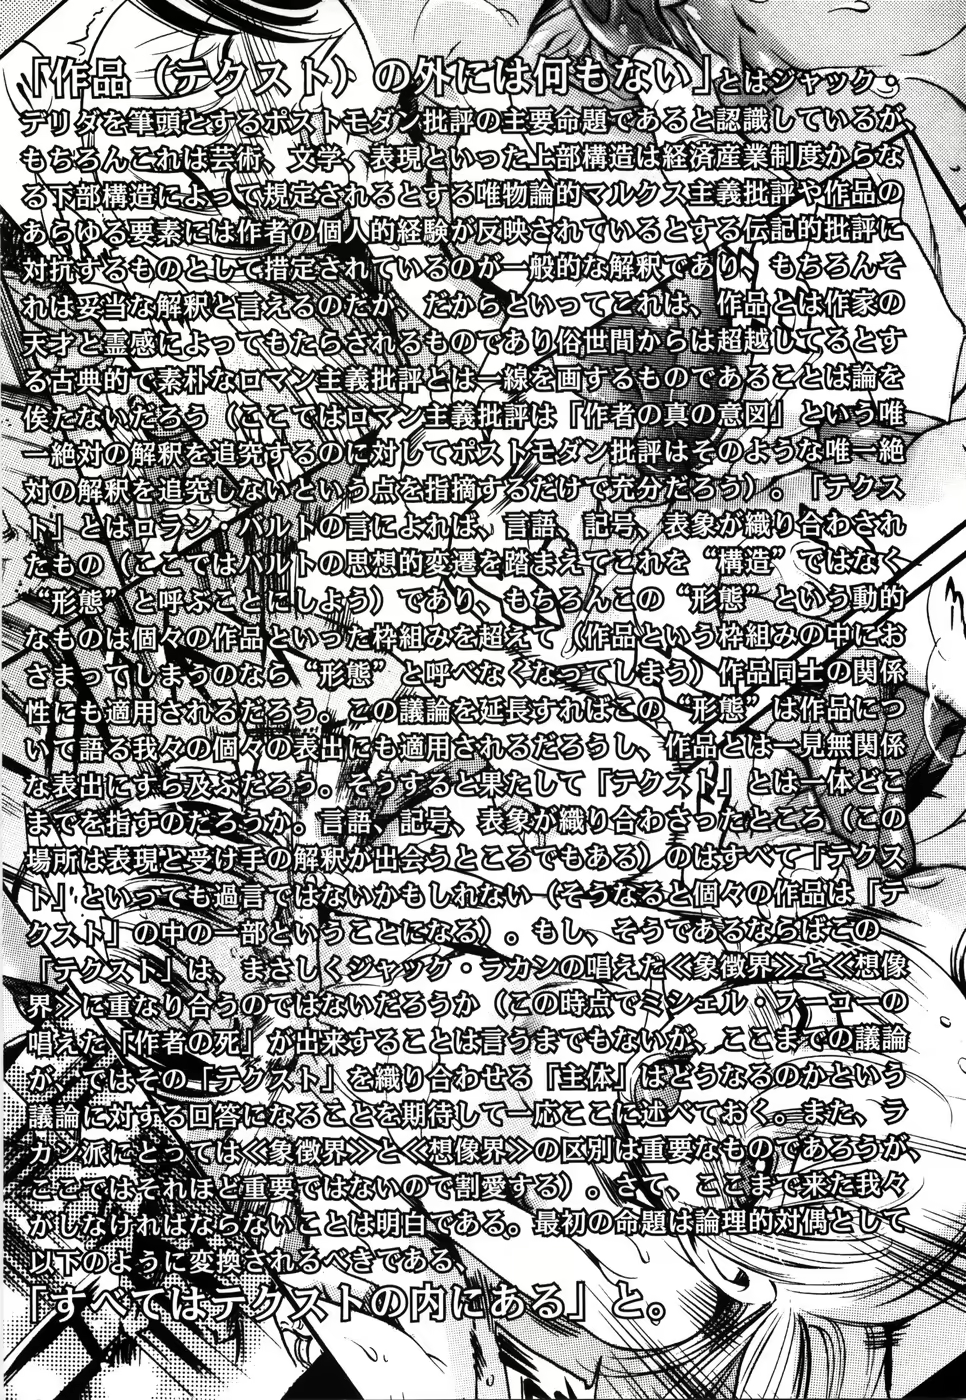 「作品（テクスト）の外には何もない」とはジャック・
デリダを筆頭とするポストモダン批評の主要命題であると認識しているが
もちろんこれは芸術、文学、表現といった上部構造は経済産業制度からな
る下部構造によって規定されるとする唯物論的マルクス主義批評や作品の
あらゆる要素には作者の個人的経験が反映されているとする伝記的批評に
対抗するものとして措定されているのが一般的な解釈であり、もちろんそ
れは妥当な解釈と言えるのだが、だからといってこれは、作品とは作家の
天才と霊感によってもたらされるものであり俗世間からは超越してるとす
る古典的で素朴なロマン主義批評とは一線を画するものであることは論を
俟たないだろう（ここではロマン主義批評は「作者の真の意図」という唯
一絶対の解釈を追究するのに対してポストモダン批評はそのような唯一絶
対の解釈を追究しないという点を指摘するだけで充分だろう）。「テクス
ト」とはロラン・バルトの言によれば、言語、記号、表象が織り合わされ
たもの（ここではバルトの思想的変遷を踏まえてこれを“構造”ではなく
“形態”と呼ぶことにしよう）であり、もちろんこの“形態”という動的
なものは個々の作品といった枠組みを超えて（作品という枠組みの中にお
さまってしまうのなら“形態”と呼べなくなってしまう）作品同士の関係
性にも適用されるだろう。この議論を延長すればこの“形態”は作品につ
いて語る我々の個々の表出にも適用されるだろうし、作品とは一見無関係
な表出にすら及ぶだろう。そうすると果たして「テクスト」とは一体どこ
までを指すのだろうか。言語、記号、表象が織り合わさったところ（この
場所は表現と受け手の解釈が出会うところでもある）のはすべて「テクス
ト」といっても過言ではないかもしれない（そうなると個々の作品は「テ
クスト」の中の一部ということになる）。もし、そうであるならばこの
「テクスト」は、まさしくジャック・ラカンの唱えた≪象徴界≫と≪想像
界≫に重なり合うのではないだろうか（この時点でミシェル・フーコーの
唱えた「作者の死」が出来することは言うまでもないが、ここまでの議論
が、ではその「テクスト」を織り合わせる「主体」はどうなるのかという
議論に対する回答になることを期待して一応ここに述べておく。また、ラ
カン派にとっては≪象徴界≫と≪想像界≫の区別は重要なものであろうが、
ここではそれほど重要ではないので割愛する）。さて、ここまで来た我々
がしなければならないことは明白である。最初の命題は論理的対偶として
以下のように変換されるべきである、
「すべてはテクストの内にある」と。